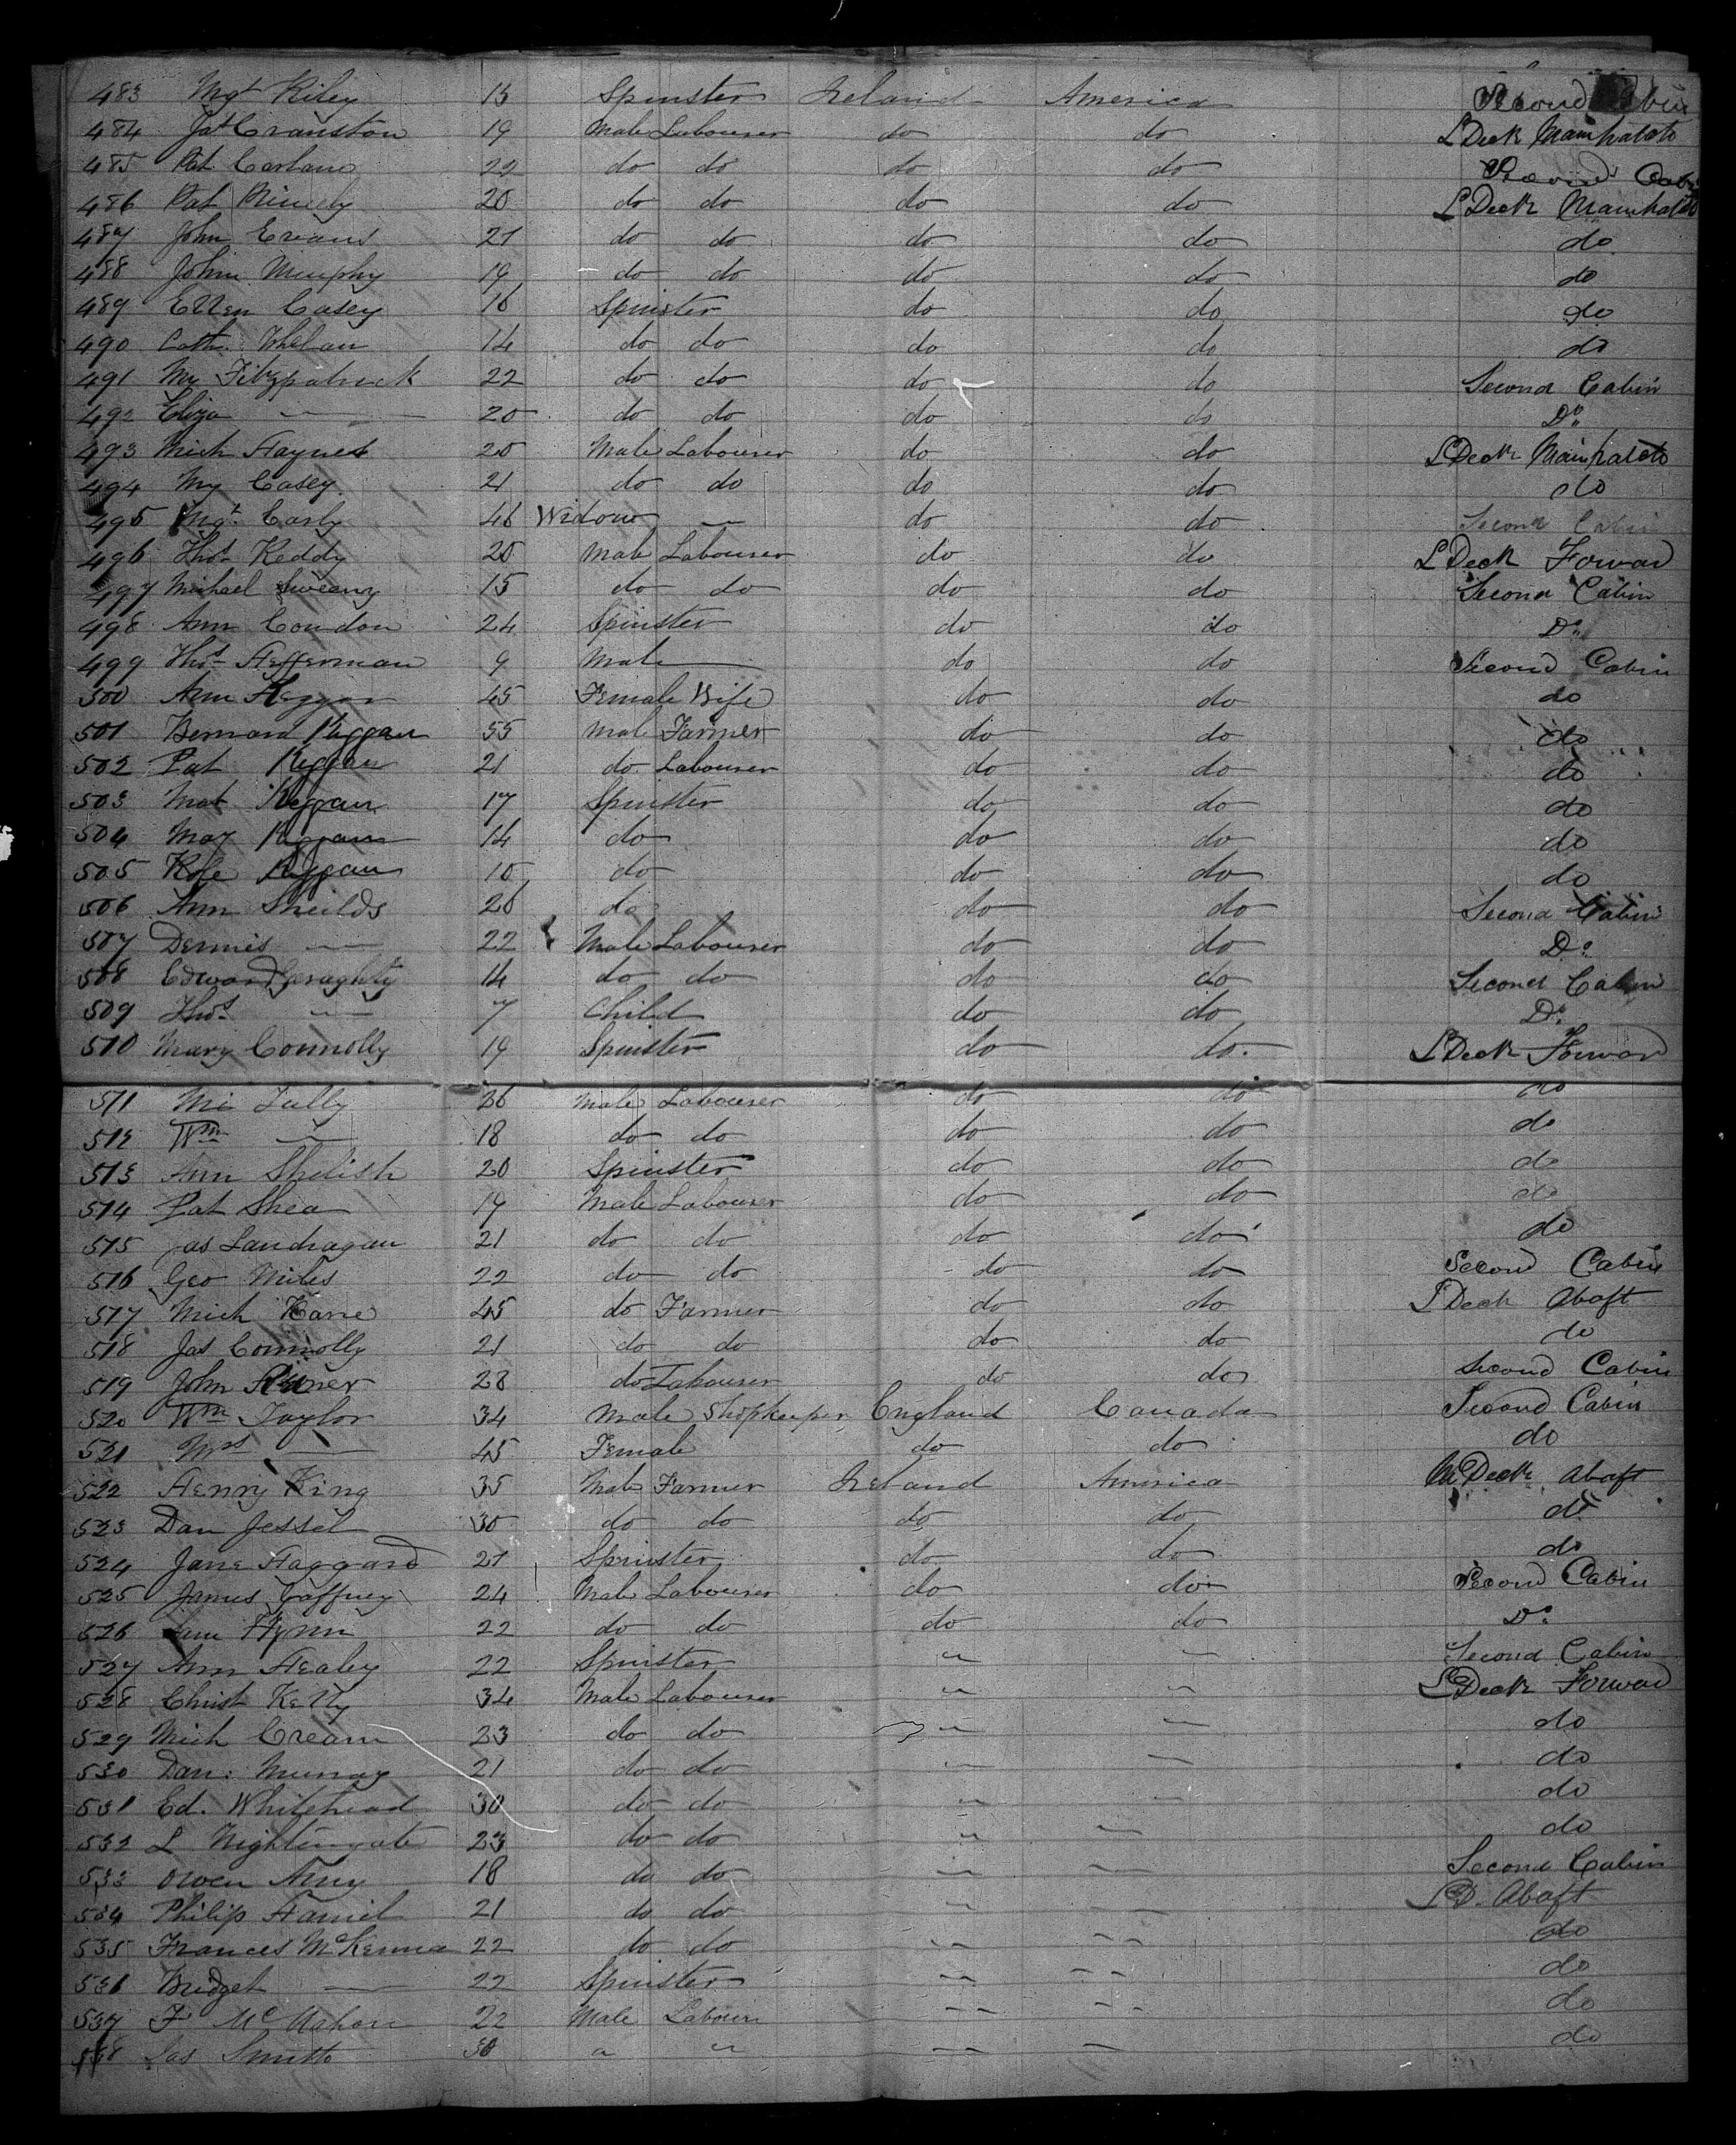 483 Mgt Riley 15 Spinster Ireland America Second Cabin
484 Jas Cranston 19 Male Labourer do do L Deck Mainhatch
485 Pat Carland 22 do do do do Second Cabin
486 Pat 20 do do do do L Deck Mainhatch
487 John Evans 21 do do do do do
488 John Murphy 19 do do do do do
489 Ellen Casey 16 Spinster do do do
490 Cath. Whelan 14 do do do do do
491 My Fitzpatrick 22 do do do do Second Cabin
492 Eliza — 20 do do do do Do
493 Mich Haynes 20 Male Labourer do do L Deck Mainhatch
494 My Casey 21 do do do do do
495 Mgt. Carly 46 Widow — do do Second Cabin
496 Thos Keddy 20 Male Labourer do do L Deck Forward
497 Michael Sweeny 15 do do do do Second Cabin
498 Ann Condon 24 Spinster do do Do
499 Thos Heffernan 9 Male — do do Second Cabin
500 Ann 45 Female Wife do do do
501 Bernard 55 Male Farmer do do do
502 Pat 21 do Labourer do do do
503 17 Spinster do do do
504 May 14 do do do do
505 Rose 10 do do do do
506 Ann Sheilds 26 do do do Second Cabin
507 Dennis — 22 Male Labourer do do Do
508 Edward Geraghty 14 do do do do Second Cabin
509 Thos — 7 Child do do Do
510 Mary Connolly 19 Spinster do do. L Deck Forward
511 Mi Tully 26 Male Labourer do do do
512 Wm — 18 do do do do do
513 Ann 20 Spinster do do do
514 Pat Shea 19 Male Labourer do do do
515 Jas Landragan 21 do do do do do
516 Geo Miles 22 do do do do Second Cabin
517 Mich Kane 45 do Farmer do do L Deck Abaft
518 Jas Connolly 21 do do do do do
519 John 28 do Labourer do do Second Cabin
520 Wm Taylor 34 Male Shopkeeper England Canada Second Cabin
521 Mrs — 45 Female do do do
522 Henry King 35 Male Farmer Ireland America M Deck Abaft
523 Dan Jessel 30 do do do do do
524 Jane Haggard 21 Spinster do do do
525 James Gaffney 24 Male Labourer do do Second Cabin
526 Flynn 22 do do do do Do
527 Ann Healey 22 Spinster " " Second Cabin
528 Christ Kelly 34 Male Labourer " " L Deck Forward
529 Mich Cream 23 do do " " do
530 Dan: Murray 21 do do " " do
531 Ed. Whitehead 30 do do " " do
532 L Nightengate 23 do do " " do
533 Owen 18 do do " " Second Cabin
534 Philip 21 do do " " L D. Abaft
535 Frances McKenna 22 do do " " do
536 Bridget — 22 Spinster " " do
537 F McMahon 22 Male Labour " " do
538 Jas Smith 30 " " " " do